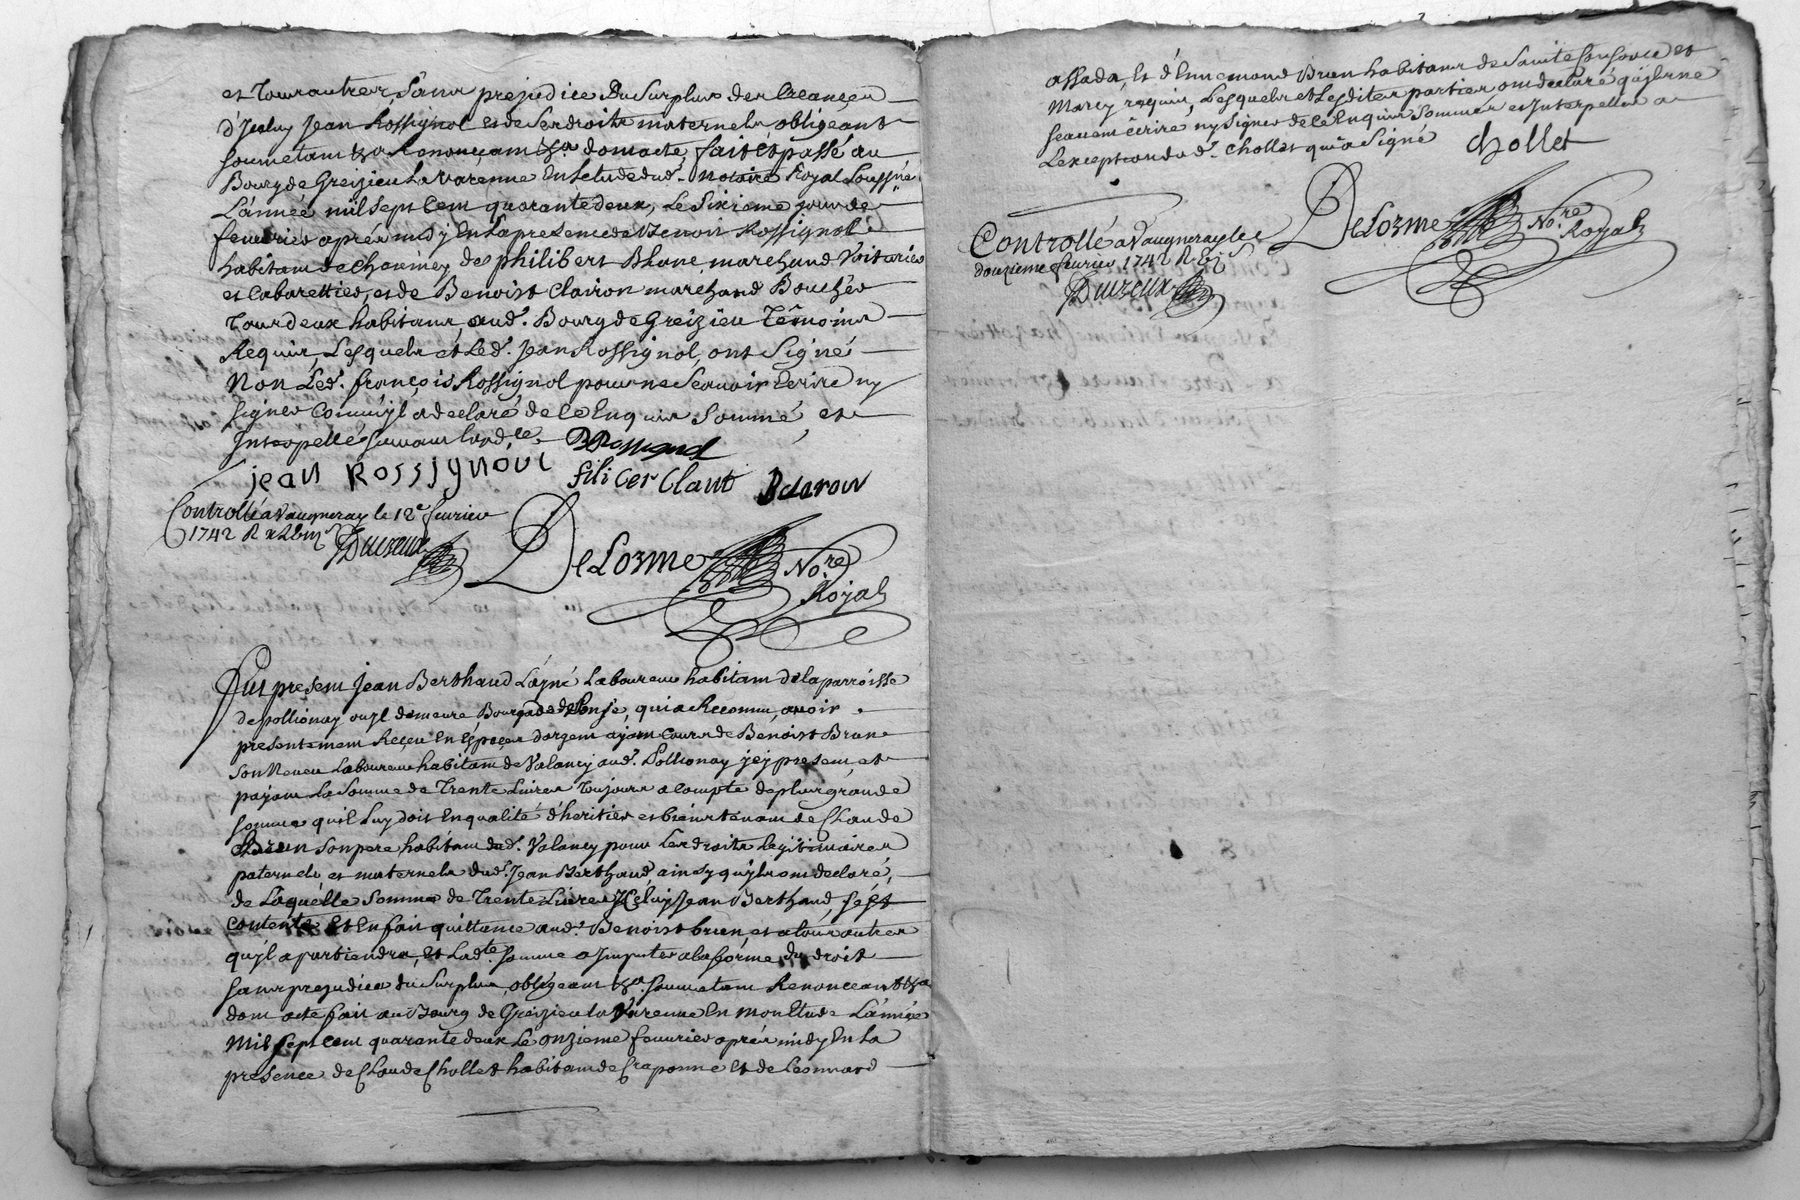 et tous autres, sans prejudice du surplus des creances
d'Jceluy Jean Rossignol et de ses droits maternels obligeant
soumetant &a Renonçant &a. dont acte, fait et passé au
Bourg de Greizieu La Varenne En letude dud. Notaire Royal soussné
L'année mil sept cent quarante deux, le sixieme jour de
feuurier aprés midy En la presence de Benoit Rossignol
habitant de Charmey de philibert Blanc marchand Voiturier
et Cabarettier, et de Benoist Clairon marchand Boucher
tous deux habitans, aud. Bourg de Greizieu Témoins
Requis, Lesquels et Led. Jean Rossignol, ont signé
Non Led. françois Rossignol pour ne scauoir Ecrire ny
signer comm'jl a declaré de ce Enquis sommé, et
Interpellé suiuant lord.ce
jean Rossignoul
Controllé a Vaugneray le 12e feurier
1742 R
DeLorme No.re
Royal
Fut present Jean Berthaud L'ayné Laboureur habitant de la parroisse
de pollionay ou jl demeure, qui a Reconnu, auoir
presentement Reçeu En Espeçes d'argent ayant cours de Benoist Brun
son Neueu Laboureur habitant de Valancy aud. Pollionay jcy present, et
payant La somme de Trente Liures Toujours a compte de plus grande
somme qu'il Luy doit En qualité d'heritier et bien tenant de Claude
Brun son pere, habitant dud. Valancy pour Les droits legitimaires
paternels et maternels dud. Jean Berthaud, ainsy qu'jls ont declaré,
de Laquelle somme de Trente Liures Jceluy Jean Berthaud, s'est
contenté Et En fait quittance aud. Benoist brun, et a tous autres
qu'jl apartiendra, Et Lad.te somme a Imputer a la forme du droit
sans prejudice du surplus, obligeant &a. soumetant Renonceant &a
dont acte fait au Bourg de Greizieu la Varenne En mon Etude L'année
Mil sept cent quarante deux Le onzieme feuurier aprés midy En la
presence de Claude Chollet habitant de Craponne Et de Leonnard
assada, Et d'Ennemond Brun habitans de Sainte Consorce et
Marcy requis, Lesquels et Lesdites parties ont declaré qu'jls ne
scauent écrire ny signer de ce Enquis Sommés et Interpellés a
L'exception dud. Chollet qui a Signé
chollet
Controllé a Vaugneray le
douzieme feurier 1742 R
DeLorme No.re
Royal